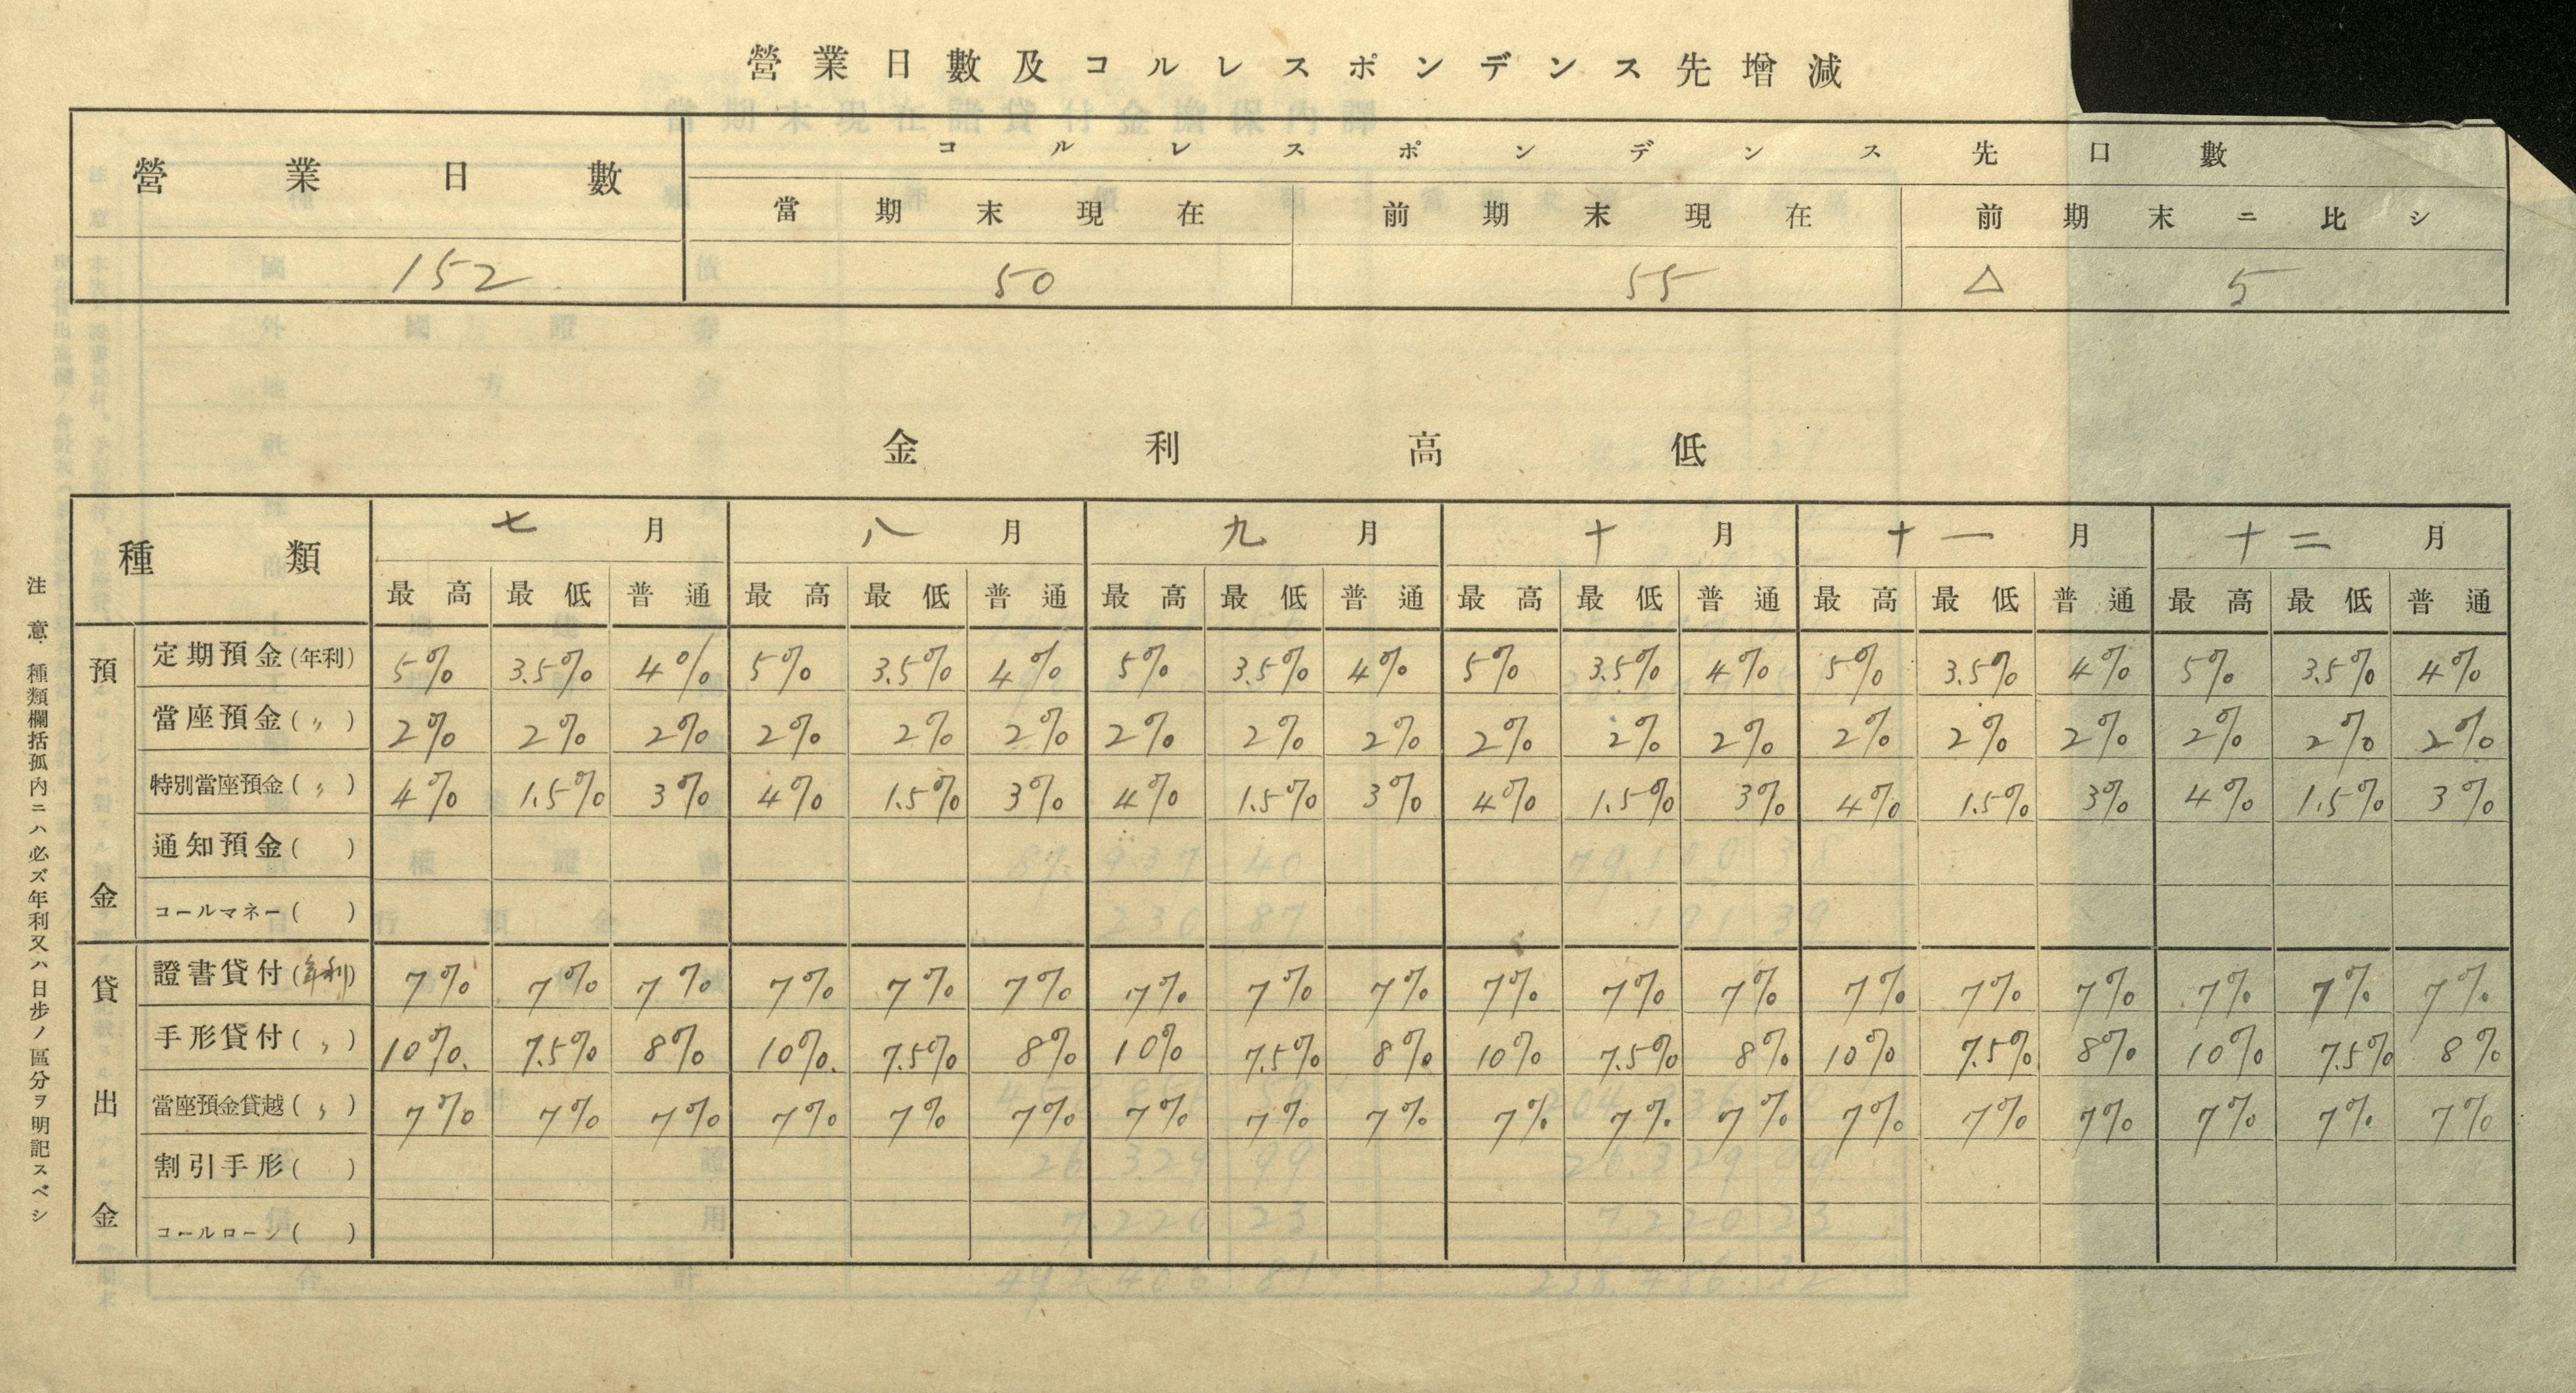 營業日數及コルレスポンデンス先增減
營業日數 コルレスポンデンス先口數
當期末現在 前期末現在 前期末ニ比シ
152 50 55 △ 5
金利高低
種類 七月 八月 九月 十月 十一月 十二月
最高 最低 普通 最高 最低 普通 最高 最低 普通 最高 最低 普通 最高 最低 普通 最高 最低 普通
預金
定期預金(年利) 5% 3.5% 4% 5% 3.5% 4% 5% 3.5% 4% 5% 3.5% 4% 5% 3.5% 4% 5% 3.5% 4%
當座預金(〃) 2% 2% 2% 2% 2% 2% 2% 2% 2% 2% 2% 2% 2% 2% 2% 2% 2% 2%
特別當座預金(〃) 4% 1.5% 3% 4% 1.5% 3% 4% 1.5% 3% 4% 1.5% 3% 4% 1.5% 3% 4% 1.5% 3%
通知預金( )
コールマネー( )
貸出金
證書貸付(年利) 7% 7% 7% 7% 7% 7% 7% 7% 7% 7% 7% 7% 7% 7% 7% 7% 7% 7%
手形貸付(〃) 10% 7.5% 8% 10% 7.5% 8% 10% 7.5% 8% 10% 7.5% 8% 10% 7.5% 8% 10% 7.5% 8%
當座預金貸越(〃) 7% 7% 7% 7% 7% 7% 7% 7% 7% 7% 7% 7% 7% 7% 7% 7% 7% 7%
割引手形( )
コールローン( )
注意 種類欄括孤内ニハ必ズ年利又ハ日步ノ區分ヲ明記スベシ